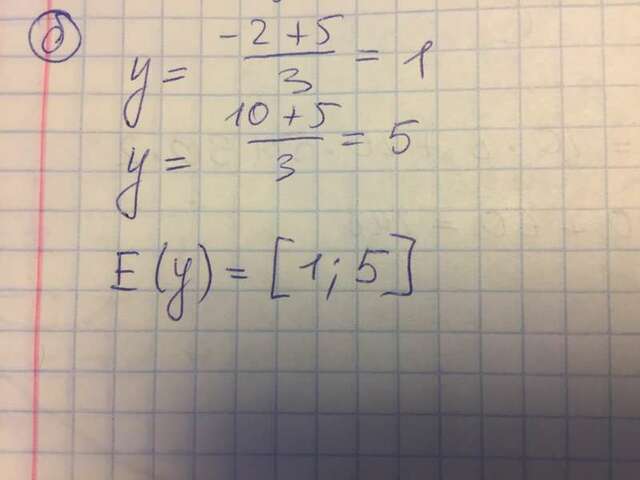 б
y = -2+5/3 = 1
y = 10+5/3 = 5
E(y) = [1; 5]